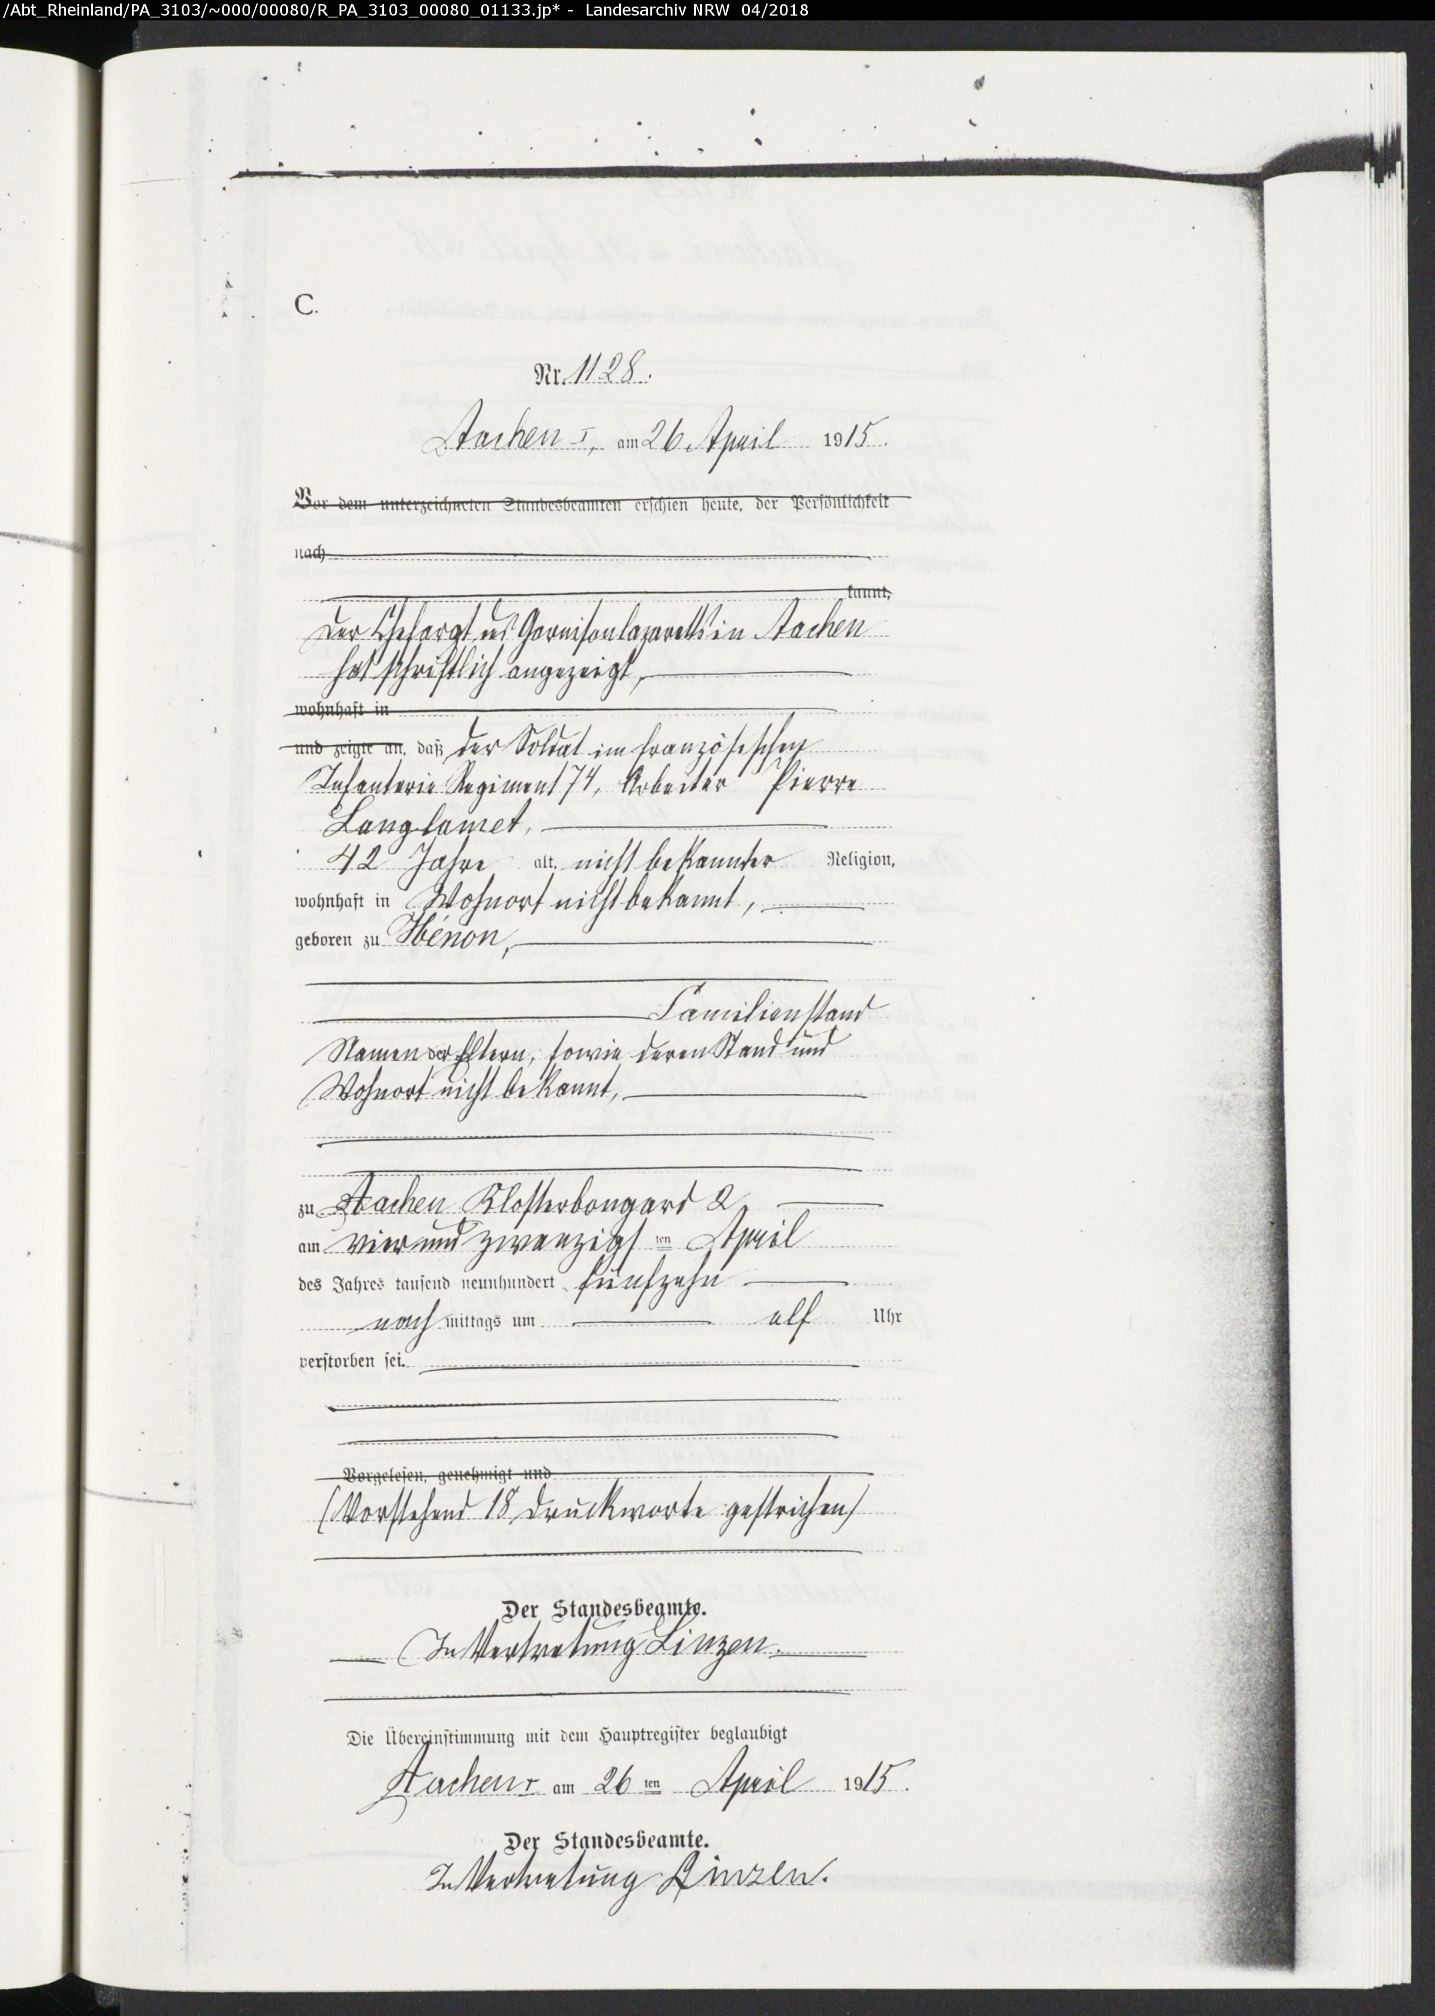 /Abt_Rheinland/PA_3103/~000/00080/R_PA_3103_00080_01133.jp* - Landesarchiv NRW 04/2018
C.
Nr. 1128.
Aachen I, am 26. April 1915.
Vor dem unterzeichneten Standesbeamten erschien heute, der Persönlichkeit
nach
kannt,
Der Chefarzt des Garnisonlazaretts in Aachen
hat schriftlich angezeigt,
wohnhaft in
und zeigte an, daß der Soldat im französischen
Infanterie Regiment 74, Arbeiter Pierre
Langlamet,
42 Jahre alt, nicht bekannter Religion,
wohnhaft in Wohnort nicht bekannt,
geboren zu Hénon,
Familienstand
Namen der Eltern, sowie deren Stand und
Wohnort nicht bekannt,
zu Aachen Klosterbongard 2
am vier und zwanzigsten April
des Jahres tausend neunhundert fünfzehn
nachmittags um elf Uhr
verstorben sei.
Vorgelesen, genehmigt und
(Vorstehend 18 Druckworte gestrichen)
Der Standesbeamte.
In Vertretung Linzen.
Die Übereinstimmung mit dem Hauptregister beglaubigt
Aachen I am 26ten April 1915.
Der Standesbeamte.
In Vertretung Linzen.